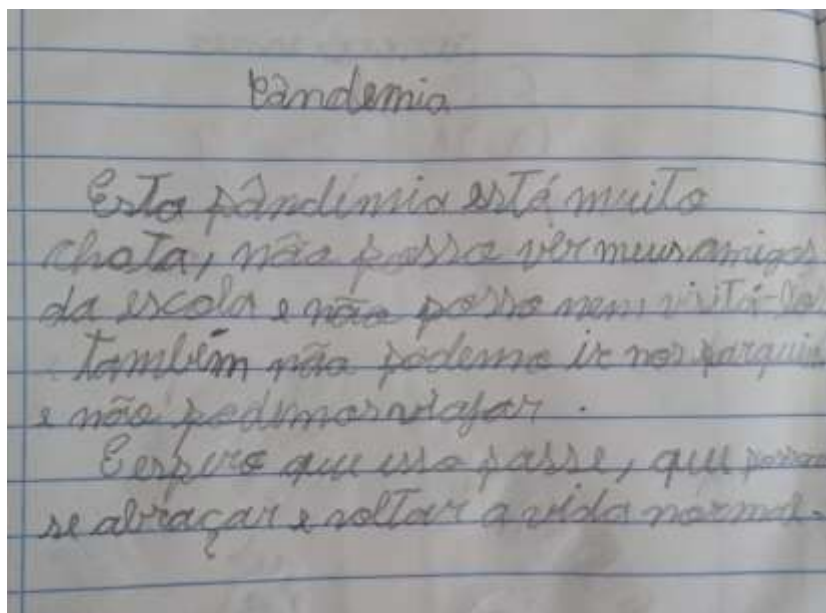 Pândemia
Esta pândimia está muito
chata, não posso ver meus amigos
da escola e não posso nem visitá-los
também não podemo ir nos parquis
e não podimos viajar.
E espero que isso passe, que possa
se abraçar e voltar a vida normal.